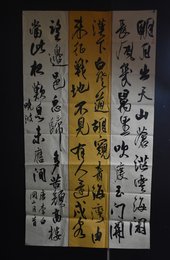 明月出天山蒼茫雲海間
長風幾萬里吹度玉門關
漢下白登道胡窺青海灣由
來征戰地不見有人還戍客
望邊邑思歸多苦顏高樓
當此夜歎息未應閒
唐李白
關山月